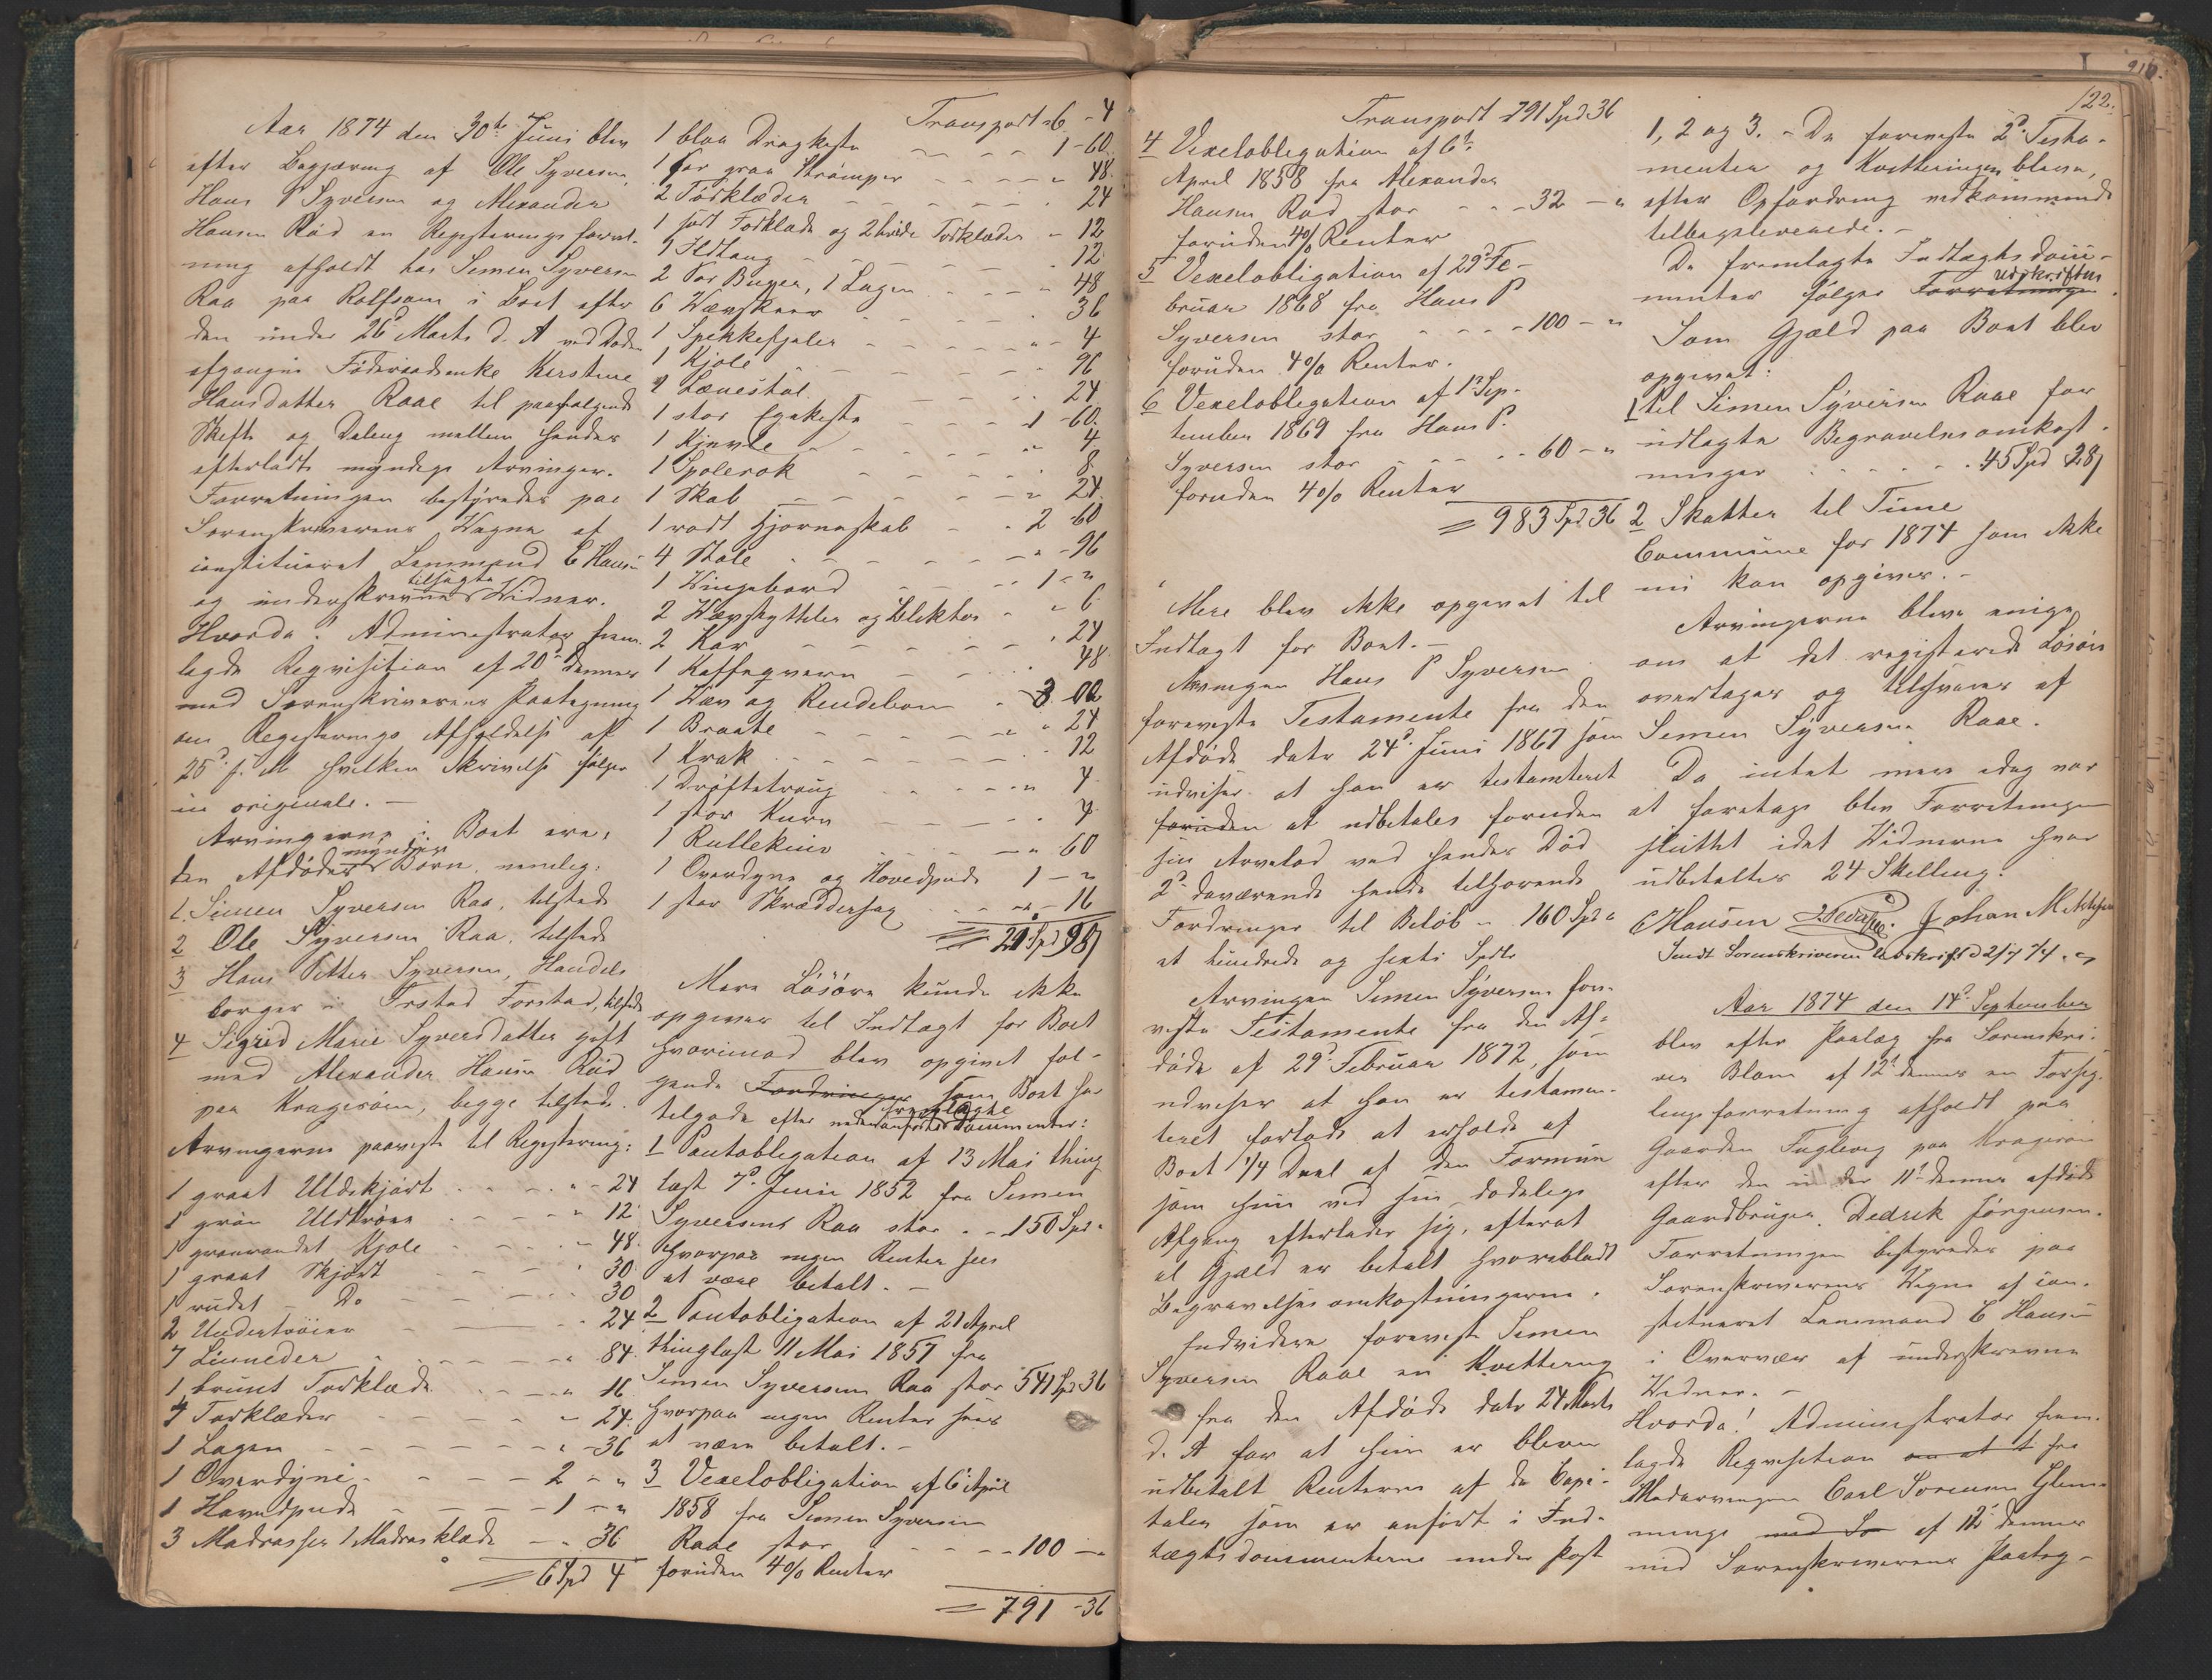 Aar 1874 den 30te Juni blev
efter Begjæring af Ole Syversen,
Hans P Syversen og Alexander
Hansen Rød en Registreringsforret-
ning afholdt hos Simen Syversen
Raa paa Rolfsøen i Boet efter
den under 26d Marts d. A ved Døden
afgangne Føderaadsenke Kirstine
Hansdatter Raae til paafølgende
Skifte og Deling mellem hendes
efterladte myndige Arvinger.
Forretningen bestyredes paa
Sorenskriverens Vegne af
constitueret Lensmand C Hansen
og underskrevne tilsagte Vidner.
Hvorda! Administrator frem-
lagde Reqvisition af 20d dennes
med Sorenskriverens Paategning
om Registrerings Afholdelse af
25d s. M hvilken Skrivelse følger
in originale. —
Arvingerne i Boet ere:
den Afdødes myndige Børn nemlig:
1. Simen Syversen Raa, tilstede
2 Ole Syversen Raa, tilstede
3 Hans Petter Syversen, Handels
borger i Forstad, tilstede
4 Sigrid Marie Syversdatter gift
med Alexander Hansen Rød
paa Kragerøen, begge tilstede.
Arvingerne paaviste til Registrering:
1 graat Uldskjørt - - - " - 24
1 grøn Uldtrøie - - - " 12
1 graarandet Kjole - - - 48
1 graat Skjørt - - - 30
1 rudet - Do - - - 30
2 Undertrøier - - - 24
7 Linneder - - - " 84
1 brunt Tørklæde - - - " 16
7 Tørklæder - - - 24
1 Lagen - - - " - 36
1 Overdyne - - - 2 - "
1 Hovedpude - - - 1 - "
3 Madrasser 1 Madrasklæde - " 36
= 6 Spd 4
Transport 6 - 4
1 blaa Dragkiste - - - 1 - 60
1 Par graa Strømper - - - " 48
2 Tørklæder - - - 24
1 sort Tørklæde og 2 hvide Tørklæder - 12
1 Ildtang - - - 12
2 Par Buxer, 1 Lagen - - - " 48
6 Vævskeer - - - 36
1 Spekkefjæler - - - " - 4
1 Kjole - - - 96
1 Lænestol - - - 24
1 stor Egekiste - - - 1 - 60
1 Kjevle - - - " 4
1 Spolerok - - - 8
1 Skab - - - " 24
1 rødt Hjørneskab - - 2 60
4 Stole - - - " - 96
1 Vingebord - - - 1 - "
2 Vævskytteler og Blikktær - " 6
2 Kar - - - " 24
1 Kaffeqvern - - - 48
1 Væv og Rendebom - 3 00
1 Braate - - - " 24
1 Krak - - - 12
1 Drøftetroug - - - " 4
1 stor Kurv - - - 4
1 Rullekniv - - - " 60
1 Overdyne og Hovedpude 1 - "
1 stor Skræddersax - - - " - 16
= 21 Spd 98/
Mere Løsøre kunde ikke
opgives til Indtægt for Boet
hvorimod blev opgivet føl-
gende Fordringer som Boet har
tilgode efter nedenanførte fremlagte Documenter:
1 Pantobligation af 13 Mai thing
læst 7d Juni 1852 fra Simen
Syversens Raa stor - - 150 Spd "
hvorpaa ingen Renter sees
at være betalt. —
2 Pantobligation af 21 April
thinglæst 11 Mai 1857 fra
Simen Syversen Raa stor 541 Spd 36
hvorpaa ingen Renter sees
at være betalt. —
3 Vexelobligation af 6 April
1858 fra Simen Syversen
Raae stor - - - 100 - "
foruden 4% Renter
= 791 - 36
122.
Transport 791 Spd 36
4 Vexelobligation af 6te
April 1858 fra Alexander
Hansen Rød stor - - - 32 - "
foruden 4% Renter
5 Vexelobligation af 29d Fe-
bruar 1868 fra Hans P
Syversen stor - - - 100 - "
foruden 4% Renter.
6 Vexelobligation af 1ste Sep-
tember 1869 fra Hans P.
Syversen stor - - - 60 - "
foruden 4% Renter
= 983 Spd 36
Mere blev ikke opgivet til
Indtægt for Boet. —
Arvingen Hans P Syversen
foreviste Testamente fra den
Afdøde datr 24d Juni 1867 som
udviser at han er testamteret
foruden at udbetales foruden
sin Arvelod ved hendes Død
2de daværende hende tilhørende
Fordringer til Beløb - 160 Spd "
et hundrede og sexti Spdlr
Arvingen Simen Syversen fore-
viste Testamente fra den Af-
døde af 29d Februar 1872, som
udviser at han er testamen-
teret forlods at erholde af
Boet 1/4 Deel af den Formue
som hun ved sin dødelige
Afgang efterlader sig, efterat
al Gjæld er betalt hvoriblandt
Begravelsesomkostningerne.
Endvidere foreviste Simen
Syversen Raae en Kvittering
fra den Afdøde datr 24 Marts
d. A for at hun er bleven
udbetalt Renterne af de Capi-
taler som er anført i Ind-
tægtsdocumenterne under Post
1, 2 og 3. - De foreviste 2de Testa-
menter og Kvitteringen bleve,
efter Opfordring vedkommende
tilbageleverede. —
De fremlagte Indtægtsdocu-
menter følger Forretningen udskriften.
Som Gjæld paa Boet blev
opgivet:
1 til Simen Syversen Raae for
udlagte Begravelsesomkost-
ninger - - - 45 Spd 28/
2 Skatter til Tune
Commune for 1874 som ikke
nu kan opgives. —
Arvingerne bleve enige
om at det registrerede Løsøre
overtages og tilsvares af
Simen Syversen Raae.
Da intet mere idag var
at foretage blev Forretningen
sluttet idet Vidnerne hver
udbetaltes 24 Skilling.
C Hansen Johan Mikkelsen
Sendt Sorenskriveren Udskrift d 2/7 74.
Aar 1874 den 14d September
blev efter Paalæg fra Sorenskri-
ver Blom af 12te dennes en Forseg-
lingsforretning afholdt paa
Gaarden Fuglevig paa Kragerøen
efter den under 11te dennes afdøde
Gaardbruger Dedrek Jørgensen.
Forretningen bestyredes paa
Sorenskriverens Vegne af con-
stitueret Lensmand C Hansen
i Overvær af underskrevne
Vidner. —
Hvorda! Administrator frem-
lagde Reqvisition om at t fra
Medarvingen Carl Sørensen Glem-
minge med So af 12te dennes
med Sorenskriverens Paateg-